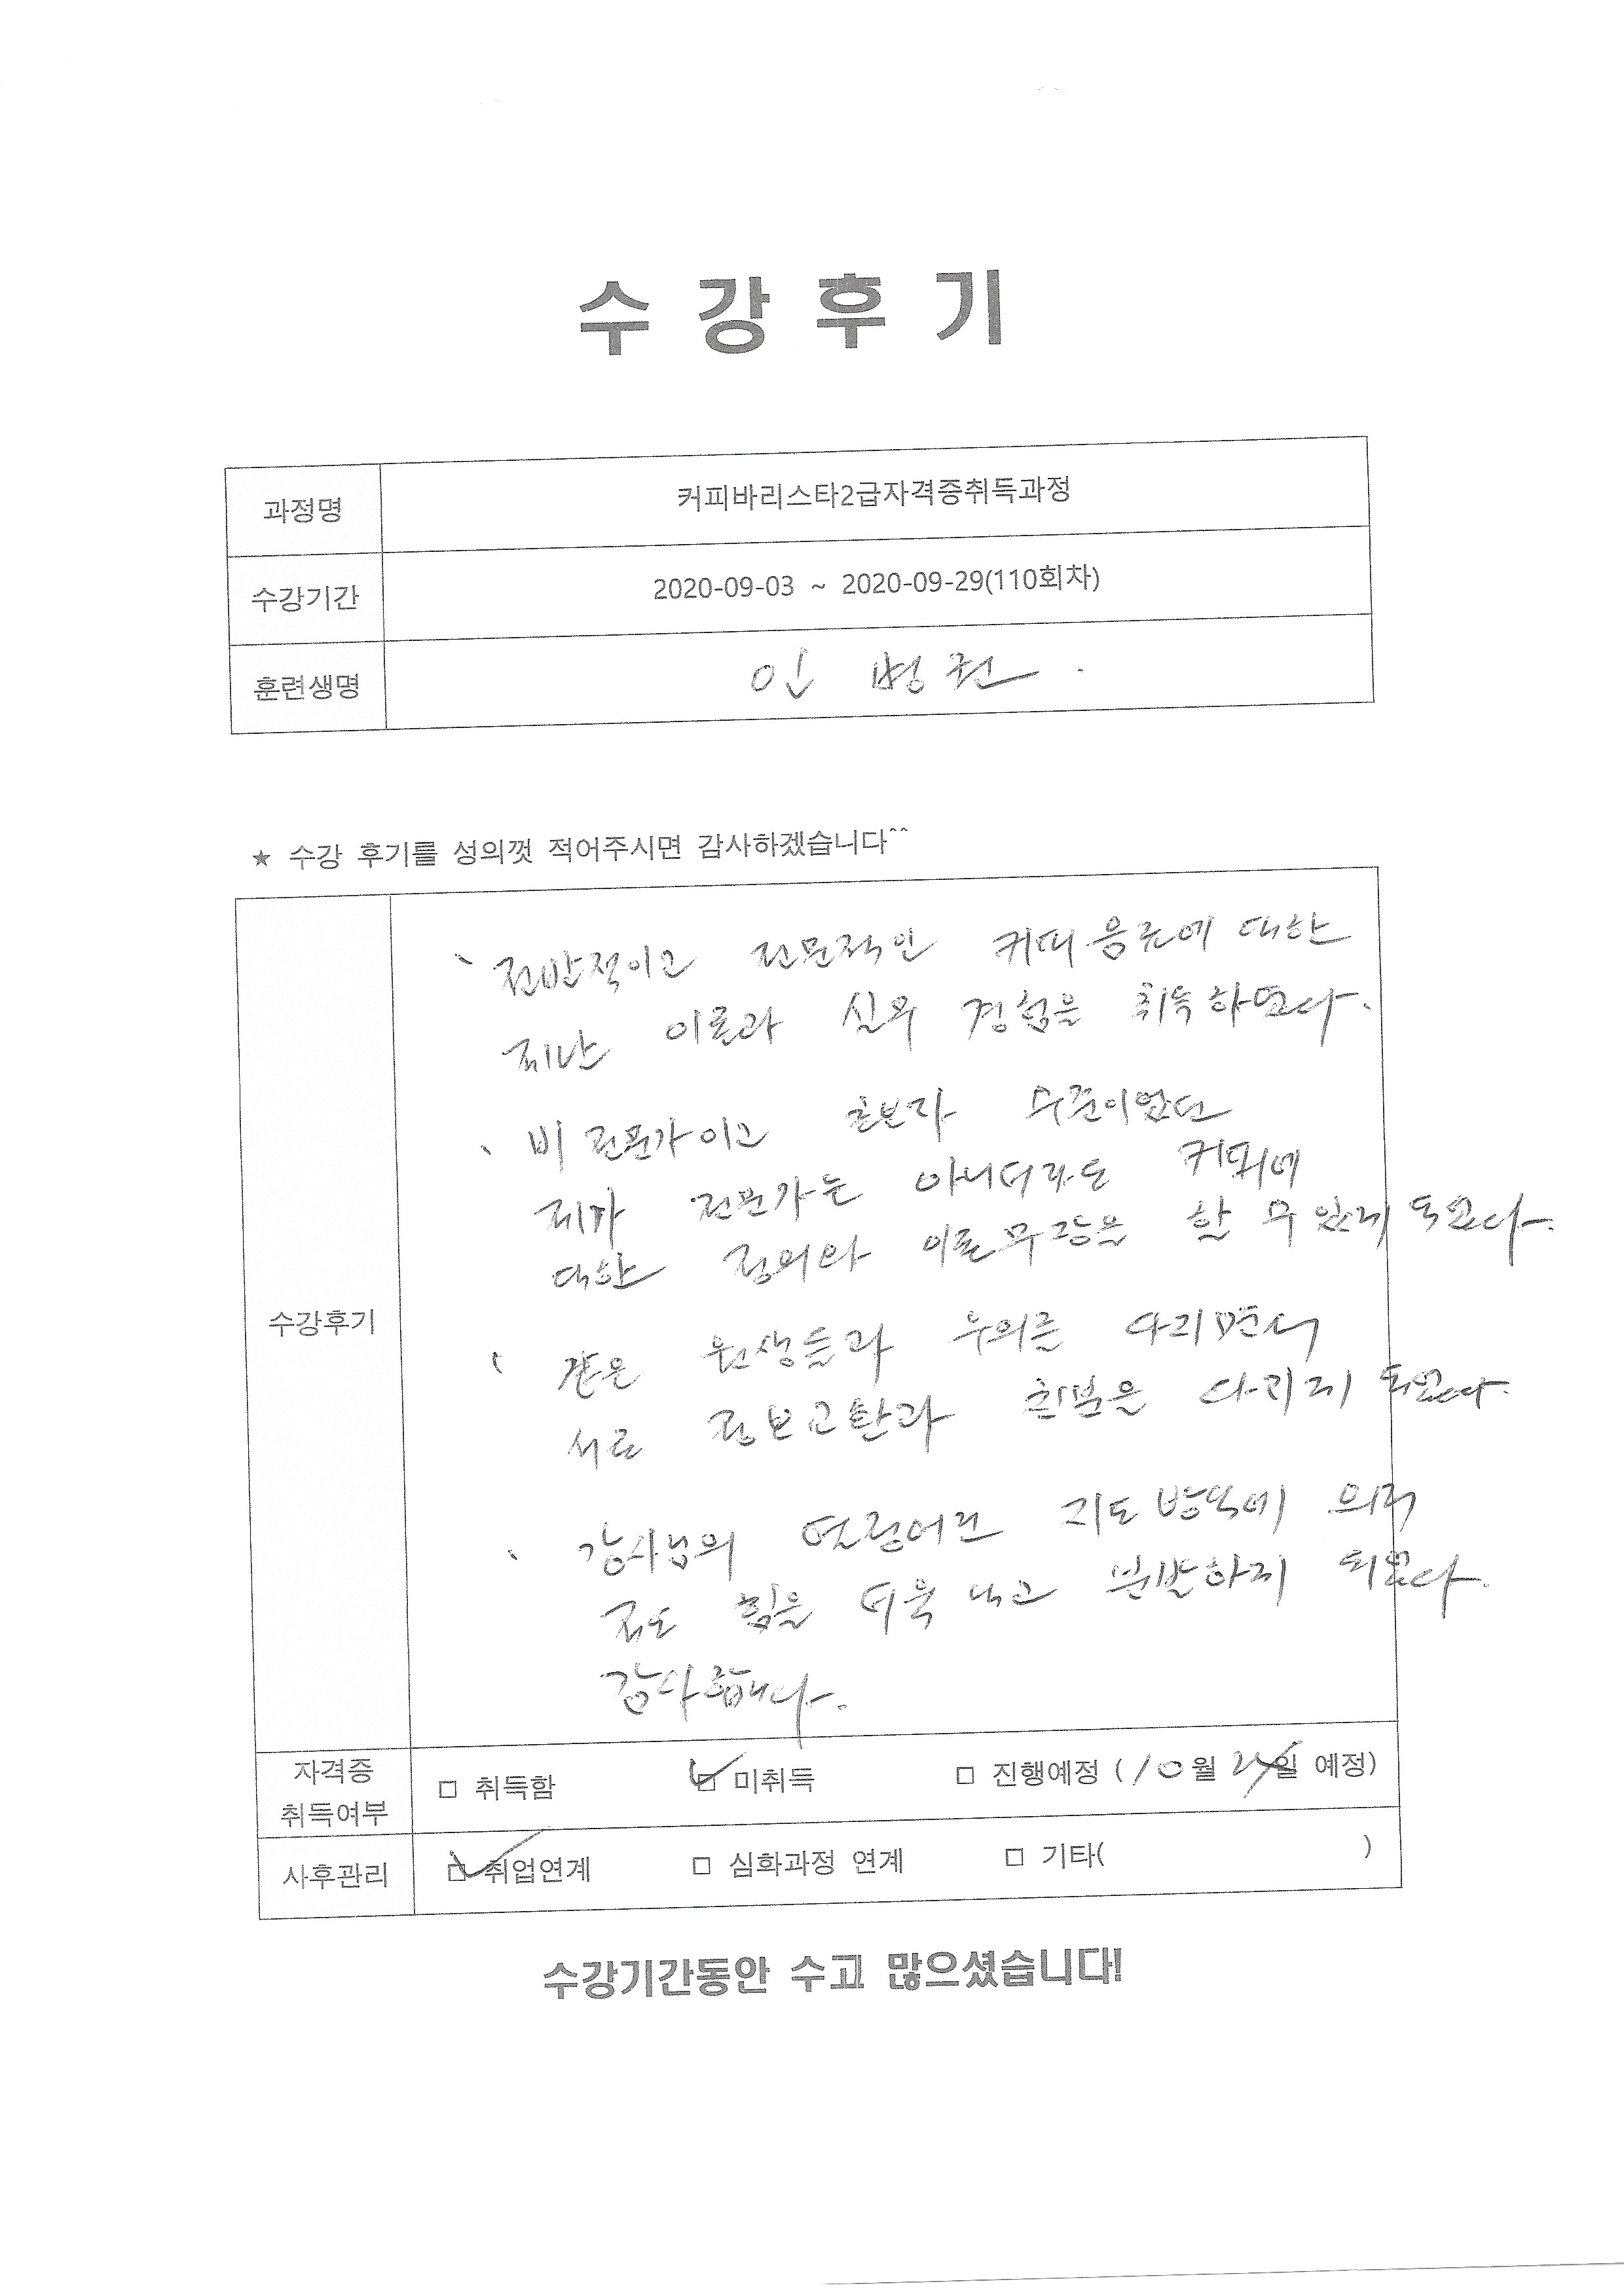 수 강 후 기
과정명 커피바리스타2급자격증취득과정
수강기간 2020-09-03 ~ 2020-09-29(110회차)
훈련생명 인 병권.
★ 수강 후기를 성의껏 적어주시면 감사하겠습니다^^
수강후기
전반적이고 전문적인 커피음료에 대한
이론과 실무 경험을 취득하였다.
비 전문가이고 초보자 수준이었던
제가 전문가는 아니더라도 커피에
대한 정의와 이론무장을 할 수 있게 되었다.
같은 원생들과 우의를 다지면서
서로 정보교환과 친분을 다지게 되었다.
강사님의 열정어린 지도방식에 의해
저도 힘을 더욱 내고 분발하게 되었다.
감사합니다.
자격증 취득여부 □ 취득함 □ 미취득 □ 진행예정 (10월 24일 예정)
사후관리 □ 취업연계 □ 심화과정 연계 □ 기타( )
수강기간동안 수고 많으셨습니다!